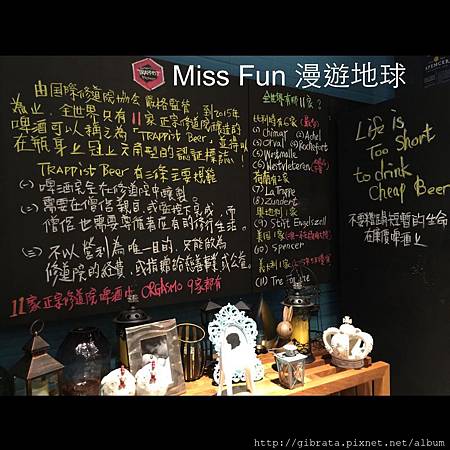 TRAPPIST
Miss Fun 漫遊地球
由国際修道院協会嚴格監管
為止,全世界只有11家 到2015年
啤酒可以稱之為「TRAPPIST Beer」
在瓶身上冠上六角型的認証標誌!
TRAPPIST Beer有三條主要規範
(一)啤酒必定在修道院中釀製
(二)需要在僧侶親自,或監控下完成,而
僧侶也需要遵循著應有的修行生活。
(三)不以營利為唯一目的,只能做為
修道院的經費,或捐贈給慈善事業或公益。
11家正宗修道院啤酒 ORGASMO 9家都有
全世界有哪11家?
比利時有6家
(1) Chimay (2) Achel
(3) Orval (4) Rochefort
(5) Westmalle
(6) Westvleteren
荷蘭有2家
(7) La Trappe
(8) Zundert
奧地利1家
(9) Stift Engelszell
美國1家
(10) Spencer
義大利1家
(11) Tre Fontane
SPENCER
Life is
Too Short
to drink
Cheap Beer
不要讓短暫的生命
在廉價啤酒上
http://gibrata.pixnet.net/album